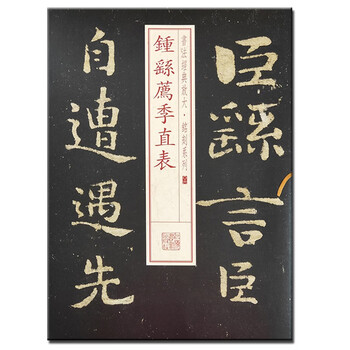 臣繇言臣
自遭遇先
書法經典放大・銘刻系列
鍾繇薦季直表